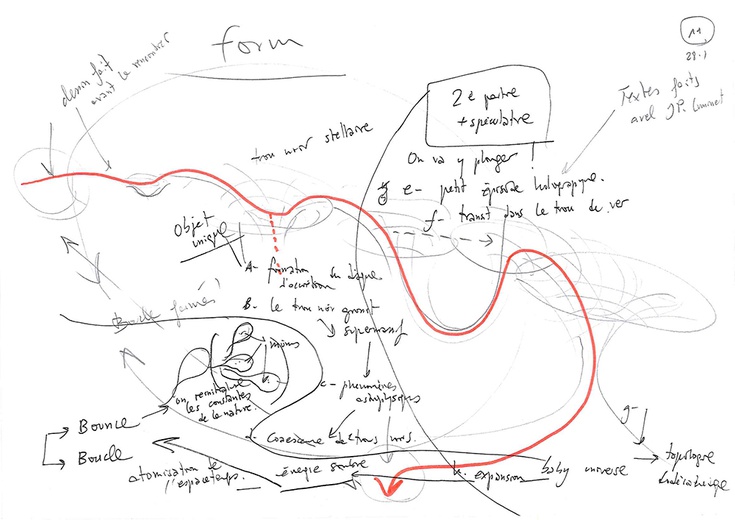 form
11.
29.1
dessin fait
avant la rencontre
2e partie
+ spéculative
Textes faits
avec JP. Luminet
trou noir stellaire
On va y plonger !
e- petit épisode holographique.
f- transit dans le trou de ver
Objet
unique
A- formation du disque
d'accrétion
B- le trou noir grossit
supermassif
Boucle fermée
on réinitialise
les constantes
de la nature.
c- phénomènes
astrophysiques
d- Coalescence de trous noirs.
Bounce
Boucle
atomisation de
l'espace temps.
énergie sombre
h. expansion
baby universe
g-
topologie